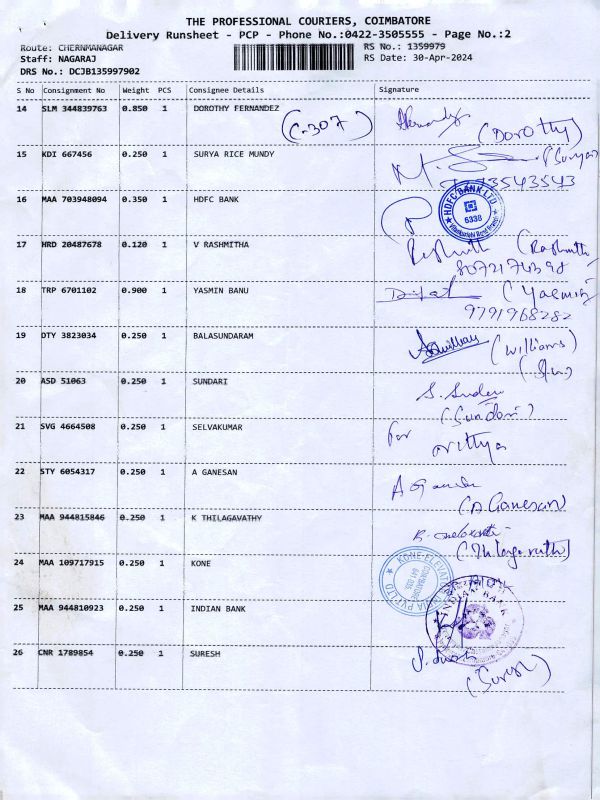 THE PROFESSIONAL COURIERS, COIMBATORE
Delivery Runsheet - PCP - Phone No.:0422-3505555 - Page No.:2
Route: CHERNMANAGAR RS No.: 1359979
Staff: NAGARAJ RS Date: 30-Apr-2024
DRS No.: DCJB135997902
S No Consignment No Weight PCS Consignee Details Signature
14 SLM 344839763 0.850 1 DOROTHY FERNANDEZ (C-307) (Dorothy)
15 KDI 667456 0.250 1 SURYA RICE MUNDY
16 MAA 703948094 0.350 1 HDFC BANK HDFC BANK LTD 6338
17 HRD 20487678 0.120 1 V RASHMITHA
18 TRP 6701102 0.900 1 YASMIN BANU (Yasmin)
9791968282
19 DTY 3823034 0.250 1 BALASUNDARAM (Williams)
20 ASD 51063 0.250 1 SUNDARI
21 SVG 4664508 0.250 1 SELVAKUMAR for
22 STY 6054317 0.250 1 A GANESAN
(A Ganesan)
23 MAA 944815846 0.250 1 K THILAGAVATHY
24 MAA 109717915 0.250 1 KONE
25 MAA 944810923 0.250 1 INDIAN BANK INDIAN BANK
26 CNR 1789854 0.250 1 SURESH
(Suresh)